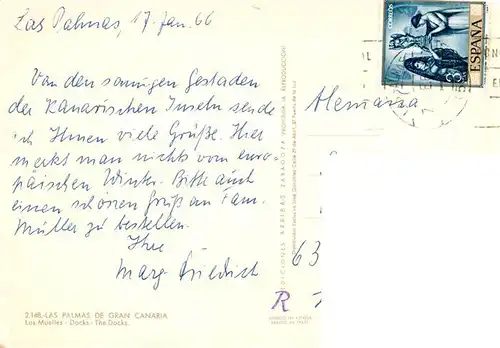 Las Palmas, 17. Jan. 66
Von den sonnigen Gestaden
der Kanarischen Inseln sende
ich Ihnen viele Grüße. Hier
merkt man nichts vom euro-
päischen Winter. Bitte auch
einen schönen Gruß an Fam.
Müller zu bestellen.
Ihre
Marg. Friedrich
2.148.-LAS PALMAS DE GRAN CANARIA
Los Muelles - Docks - The Docks.
CORREOS
ESPAÑA
Alemania
63
R